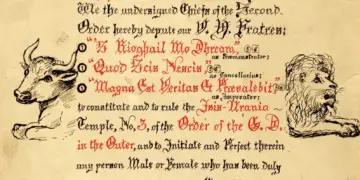 We the undersigned Chiefs of the Second
Order hereby depute our V. H. Fratres;
"'S Rioghail Mo Dhream,"
as Praemonstrator;
"Quod Scis Nescis"
as Cancellarius;
"Magna Est Veritas Et Praevalebit"
as Imperator;
to constitute and to rule the Isis-Urania
Temple, No. 3, of the Order of the G. D.
in the Outer, and to Initiate and Perfect therein
any person Male or Female who has been duly